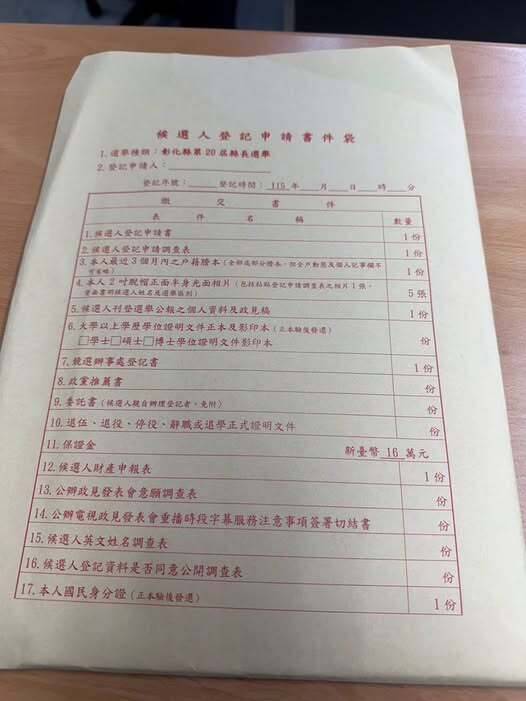 候選人登記申請書件袋
1.選舉種類：彰化縣第20屆縣長選舉
2.登記申請人：
登記序號： 登記時間：115年 月 日 時 分
繳交書件
表件名稱 數量
1.候選人登記申請書 1份
2.候選人登記申請調查表 1份
3.本人最近3個月內之戶籍謄本(全部或部分謄本，但全戶動態及個人記事欄不可省略) 1份
4.本人2吋脫帽正面半身光面相片(包括粘貼登記申請調查表之相片1張，背面書明候選人姓名及選舉區別) 5張
5.候選人刊登選舉公報之個人資料及政見稿 1份
6.大學以上學歷學位證明文件正本及影印本(正本驗後發還)
□學士□碩士□博士學位證明文件影印本 份
7.競選辦事處登記書 1份
8.政黨推薦書 份
9.委託書(候選人親自辦理登記者，免附) 份
10.退伍、退役、停役、辭職或退學正式證明文件 份
11.保證金 新臺幣 16 萬元
12.候選人財產申報表 1份
13.公辦政見發表會意願調查表 份
14.公辦電視政見發表會重播時段字幕服務注意事項簽署切結書 份
15.候選人英文姓名調查表 份
16.候選人登記資料是否同意公開調查表 份
17.本人國民身分證(正本驗後發還) 1份